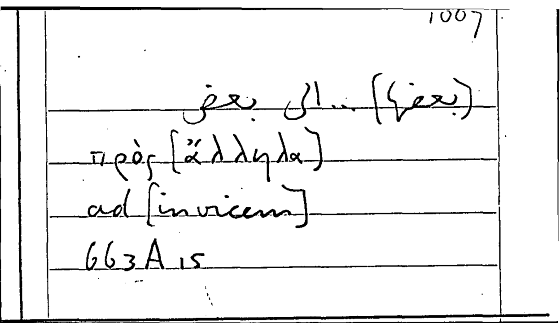 1007
[بعضها] ... الى بعض
πρὸς [ἄλληλα]
ad [invicem]
663A 15